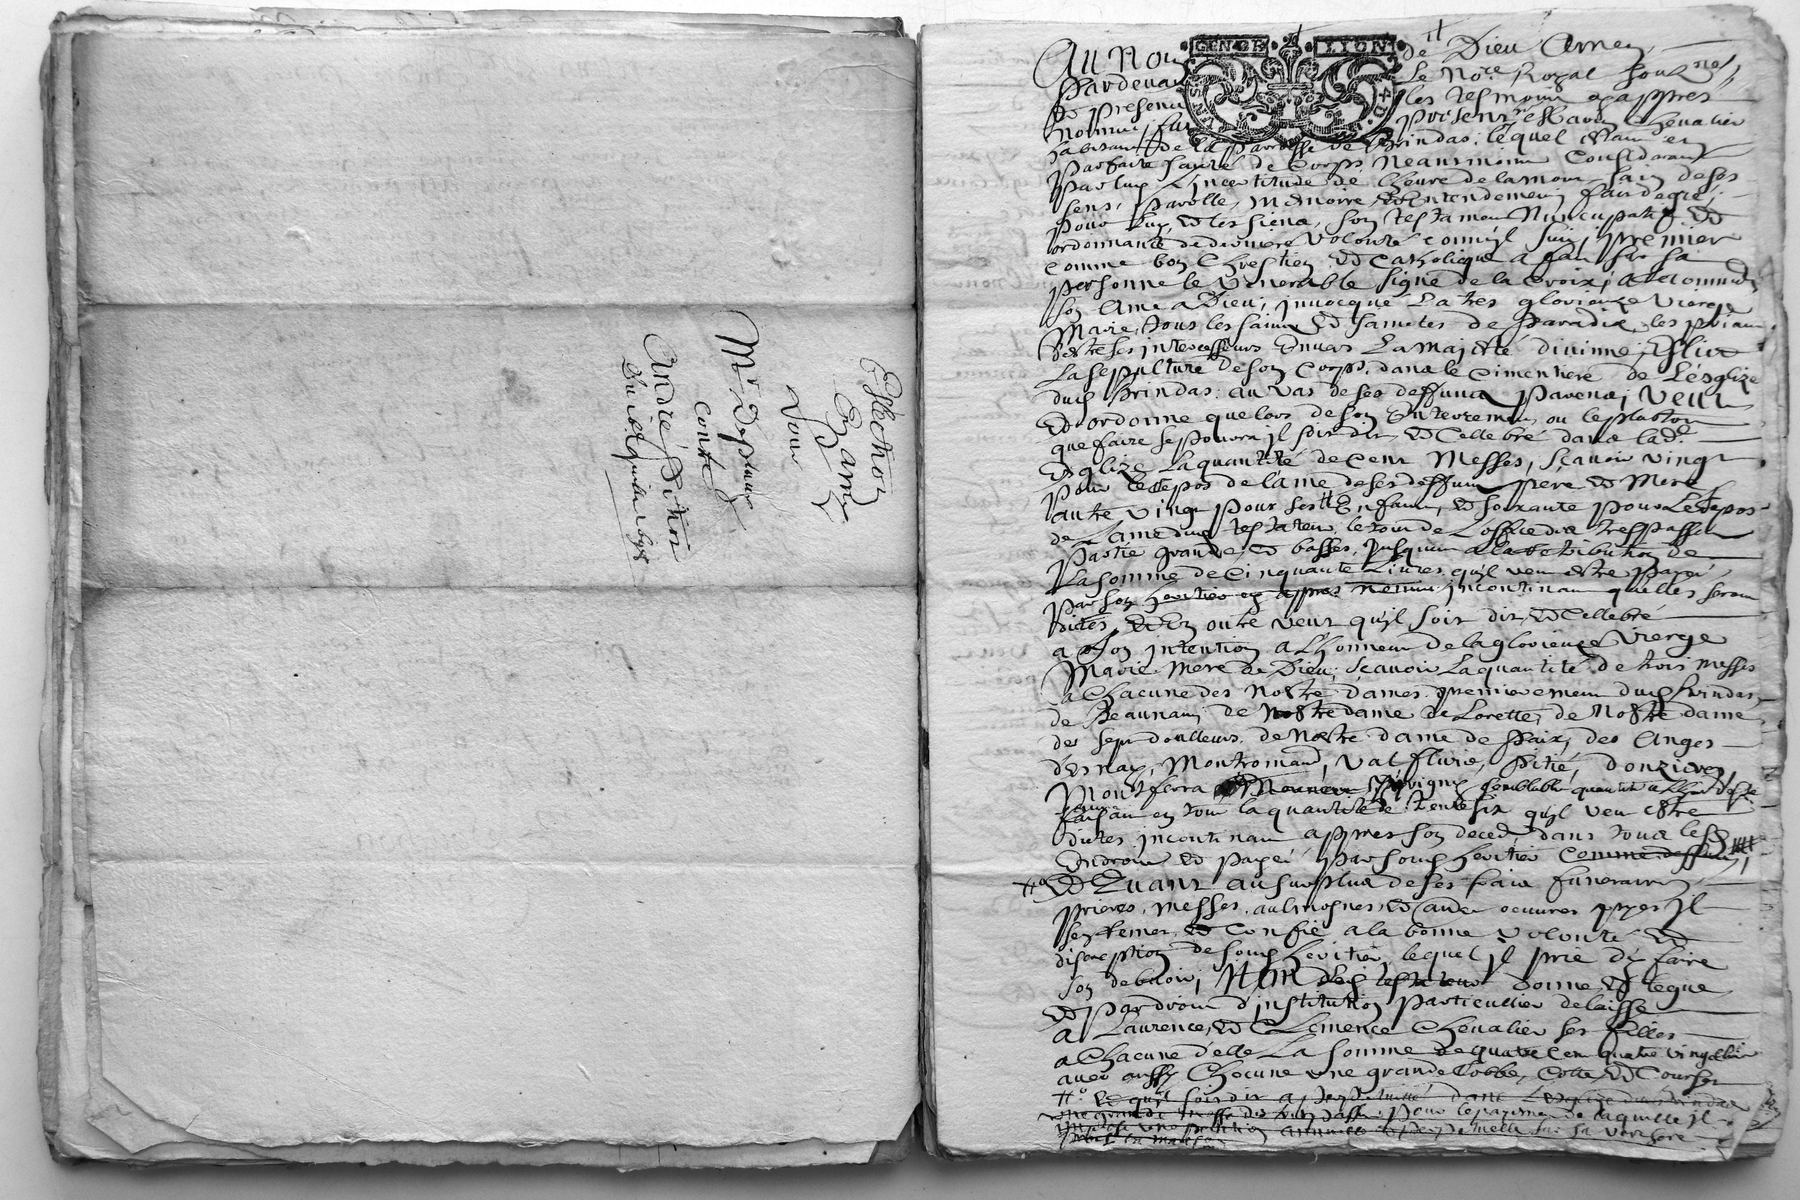 Eslection
Barry
Pour
Mr Deplany
conte
André Pithion
GENDE LYON
Au Nom de Dieu Amen
Pardevant le Nore Royal soubzné
& presence les tesmoins cy appres
nommes fut present estavin Chevalier
habitant de la parroisse de Brindas, lequel estant en
parfaite santé de corps neantmoins considerant
par luy l'incertitude de l'heure de la mort, sain de ses
sens, parolle, memoire & entendement, fait de gré,
pour luy & les siens, son testament nuncupatif &
ordonnance de derniere volonté comm'jl suit, premier
comme bon Chrestien & catholicque a fait sur sa
personne le venerable signe de la Croix, a recommandé
son ame a Dieu, jnvocqué la tres glorieuze vierge
Marie, tous les saints & saintes de Paradis, les priant
d'estre ses jntercesseurs envers la majesté divinne, Eslit
la sepulture de son corps dans le cimentiere de l'esglize
dud Brindas, au vas de ses deffuncts parens, veut
& ordonne que lors de son enterrement, ou le plustost
que faire se pourra jl soit dit & cellebré dans lad
Esglize la quantité de cent messes, sçavoir vingt
pour le repos de l'ame de ses deffunts pere & mere
autre vingt pour ses Enfants, & soixante pour le repos
de l'ame dud testateur, le tout de l'office des trespassés
partie grandes & basses, jusques a la retribution de
la somme de cinquante livres, qu'jl veut estre payé
par son heritier cy appres nommé jncontinant qu'elles seront
dictes, & en outre veut qu'jl soit dit & cellebré
a son jntention a l'honneur de la glorieuze vierge
Marie mere de Dieu, sçavoir la quantité de trois messes
a chacune des nostre dames, premierement dud Brindas,
de Beaunant, de nostre dame de Lorette, de nostre dame
des sept doulleurs, de nostre dame de Paix, des anges
d'esnay, Montromand, Valfluric, Pitié, donzieres,
Montferra semblable quantité
faisant en tout la quantité de trente six qu'jl veut estre
dictes jncontinant appres son deced, dans tous les
endroits & payé par soud heritier comme dessus,
& Quant au surplus de ses frais funerairs,
prieres, messes, aulmosnes & autres oeuvres pyes jl
s'en remet & confie a la bonne volonté &
discreption de soud heritier, lequel jl prie d'y faire
son debvoir, Item led testateur donne & legue
& par droit d'institution particulliere delaisse
a Laurence & Clemence Chevalier ses filles
a chacune d'elle la somme de quatre cent quatre vingt
avec aussy chacune une grande robbe, cotte & courset
& qu'jl soit dit a perpetuité dans l'esglize dud Brindas
une grande messe des trespassés, pour le payement de laquelle jl
jmpose une pention annuelle & perpetuelle sur sa